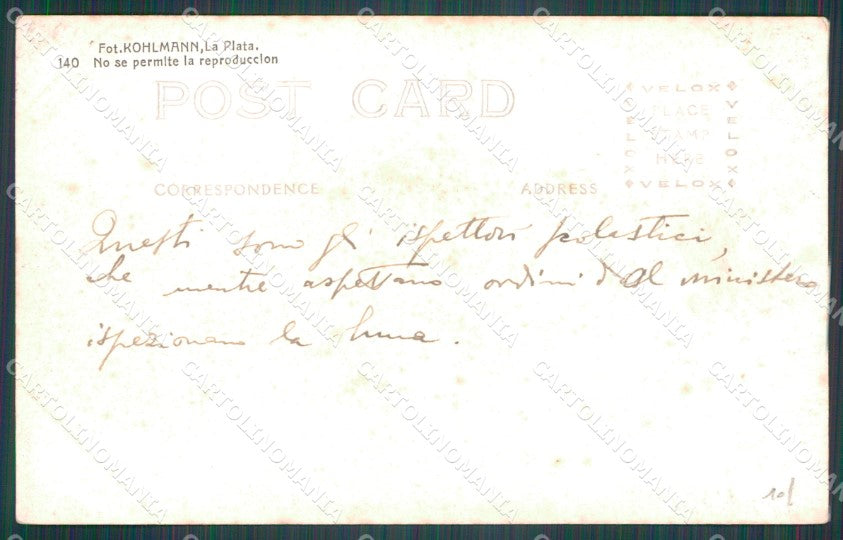 Fot.KOHLMANN,La Plata.
140 No se permite la reproduccion
POST CARD
VELOX
PLACE
STAMP
HERE
VELOX
VELOX
VELOX
CORRESPONDENCE
ADDRESS
Questi sono gli ispettori scolastici,
che mentre aspettano ordini dal ministero
ispezionano la luna.
10/
CARTOLINOMANIA